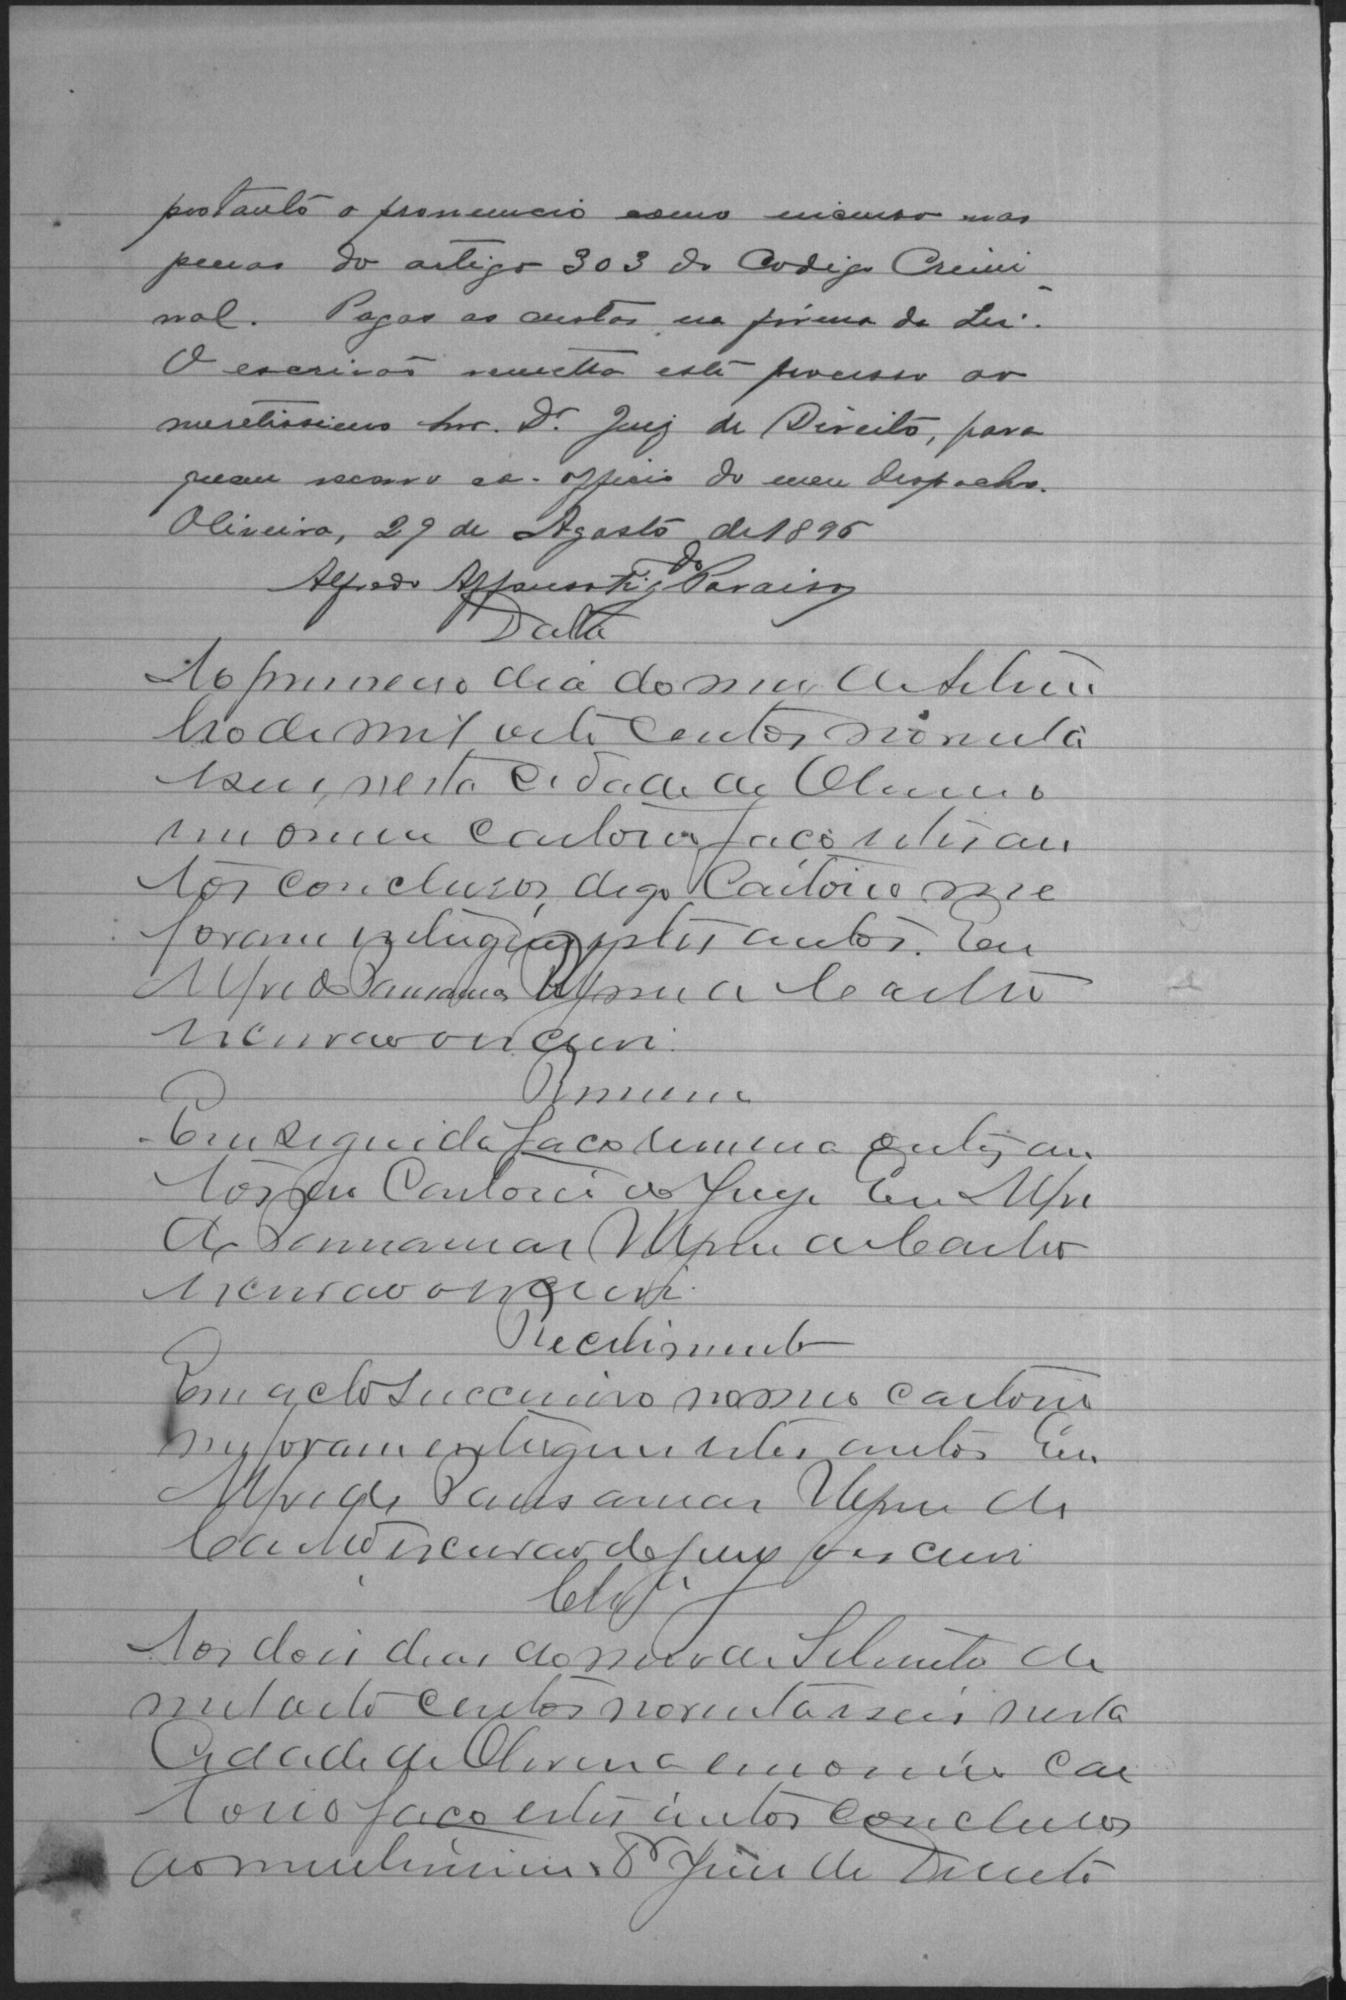 portanto o pronuncio como incurso nas
penas do artigo 303 do Codigo Crimi-
nal. Pagas as custas na fórma da Lei.
O escrivão remetta este processo ao
meretissimo Snr. Dr. Juiz de Direito, para
quem recorro ex-officio do meu despacho.
Oliveira, 29 de Agosto de 1896
Alfredo Affonso do Paraiso
Data
Ao primeiro dia do mez de Setem
bro de mil oito centos noventa
e seis, nesta Cidade de Oliveira
em o meu Cartorio faço estes au
tos conclusos, digo Cartorio me
foram entregues estes autos. Eu
Alfredo de Castro
escrivão o escrevi.
Remessa
Em seguida faço remessa estes au
tos ao Cartorio do Jury Eu Alfre
do de Castro
escrivão o escrevi.
Recebimento
Em acto successivo no meu cartorio
me foram entregues estes autos Eu
Alfredo de
Castro escrivão do jury o escrevi
Clsº
Aos dois dias do mez de Setembro de
mil oito centos noventa e seis nesta
Cidade de Oliveira em o meu Car
torio faço estes autos conclusos
ao meritissimo Dr Juiz de Direito